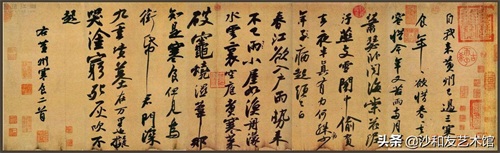 自我來黃州已過三寒
食年年欲惜春春去不
容惜今年又苦雨兩月秋
蕭瑟臥聞海棠花泥
汙燕支雪闇中偷負
去夜半真有力何殊少
年子病起須已白
春江欲入戶雨勢來
不已雨小屋如漁舟濛濛
水雲裏空庖煮寒菜
破竈燒濕葦那
知是寒食但見烏
銜帋君門深
九重墳墓在万里也擬
哭塗窮死灰吹不
起
右黃州寒食二首
@沙和友艺术馆